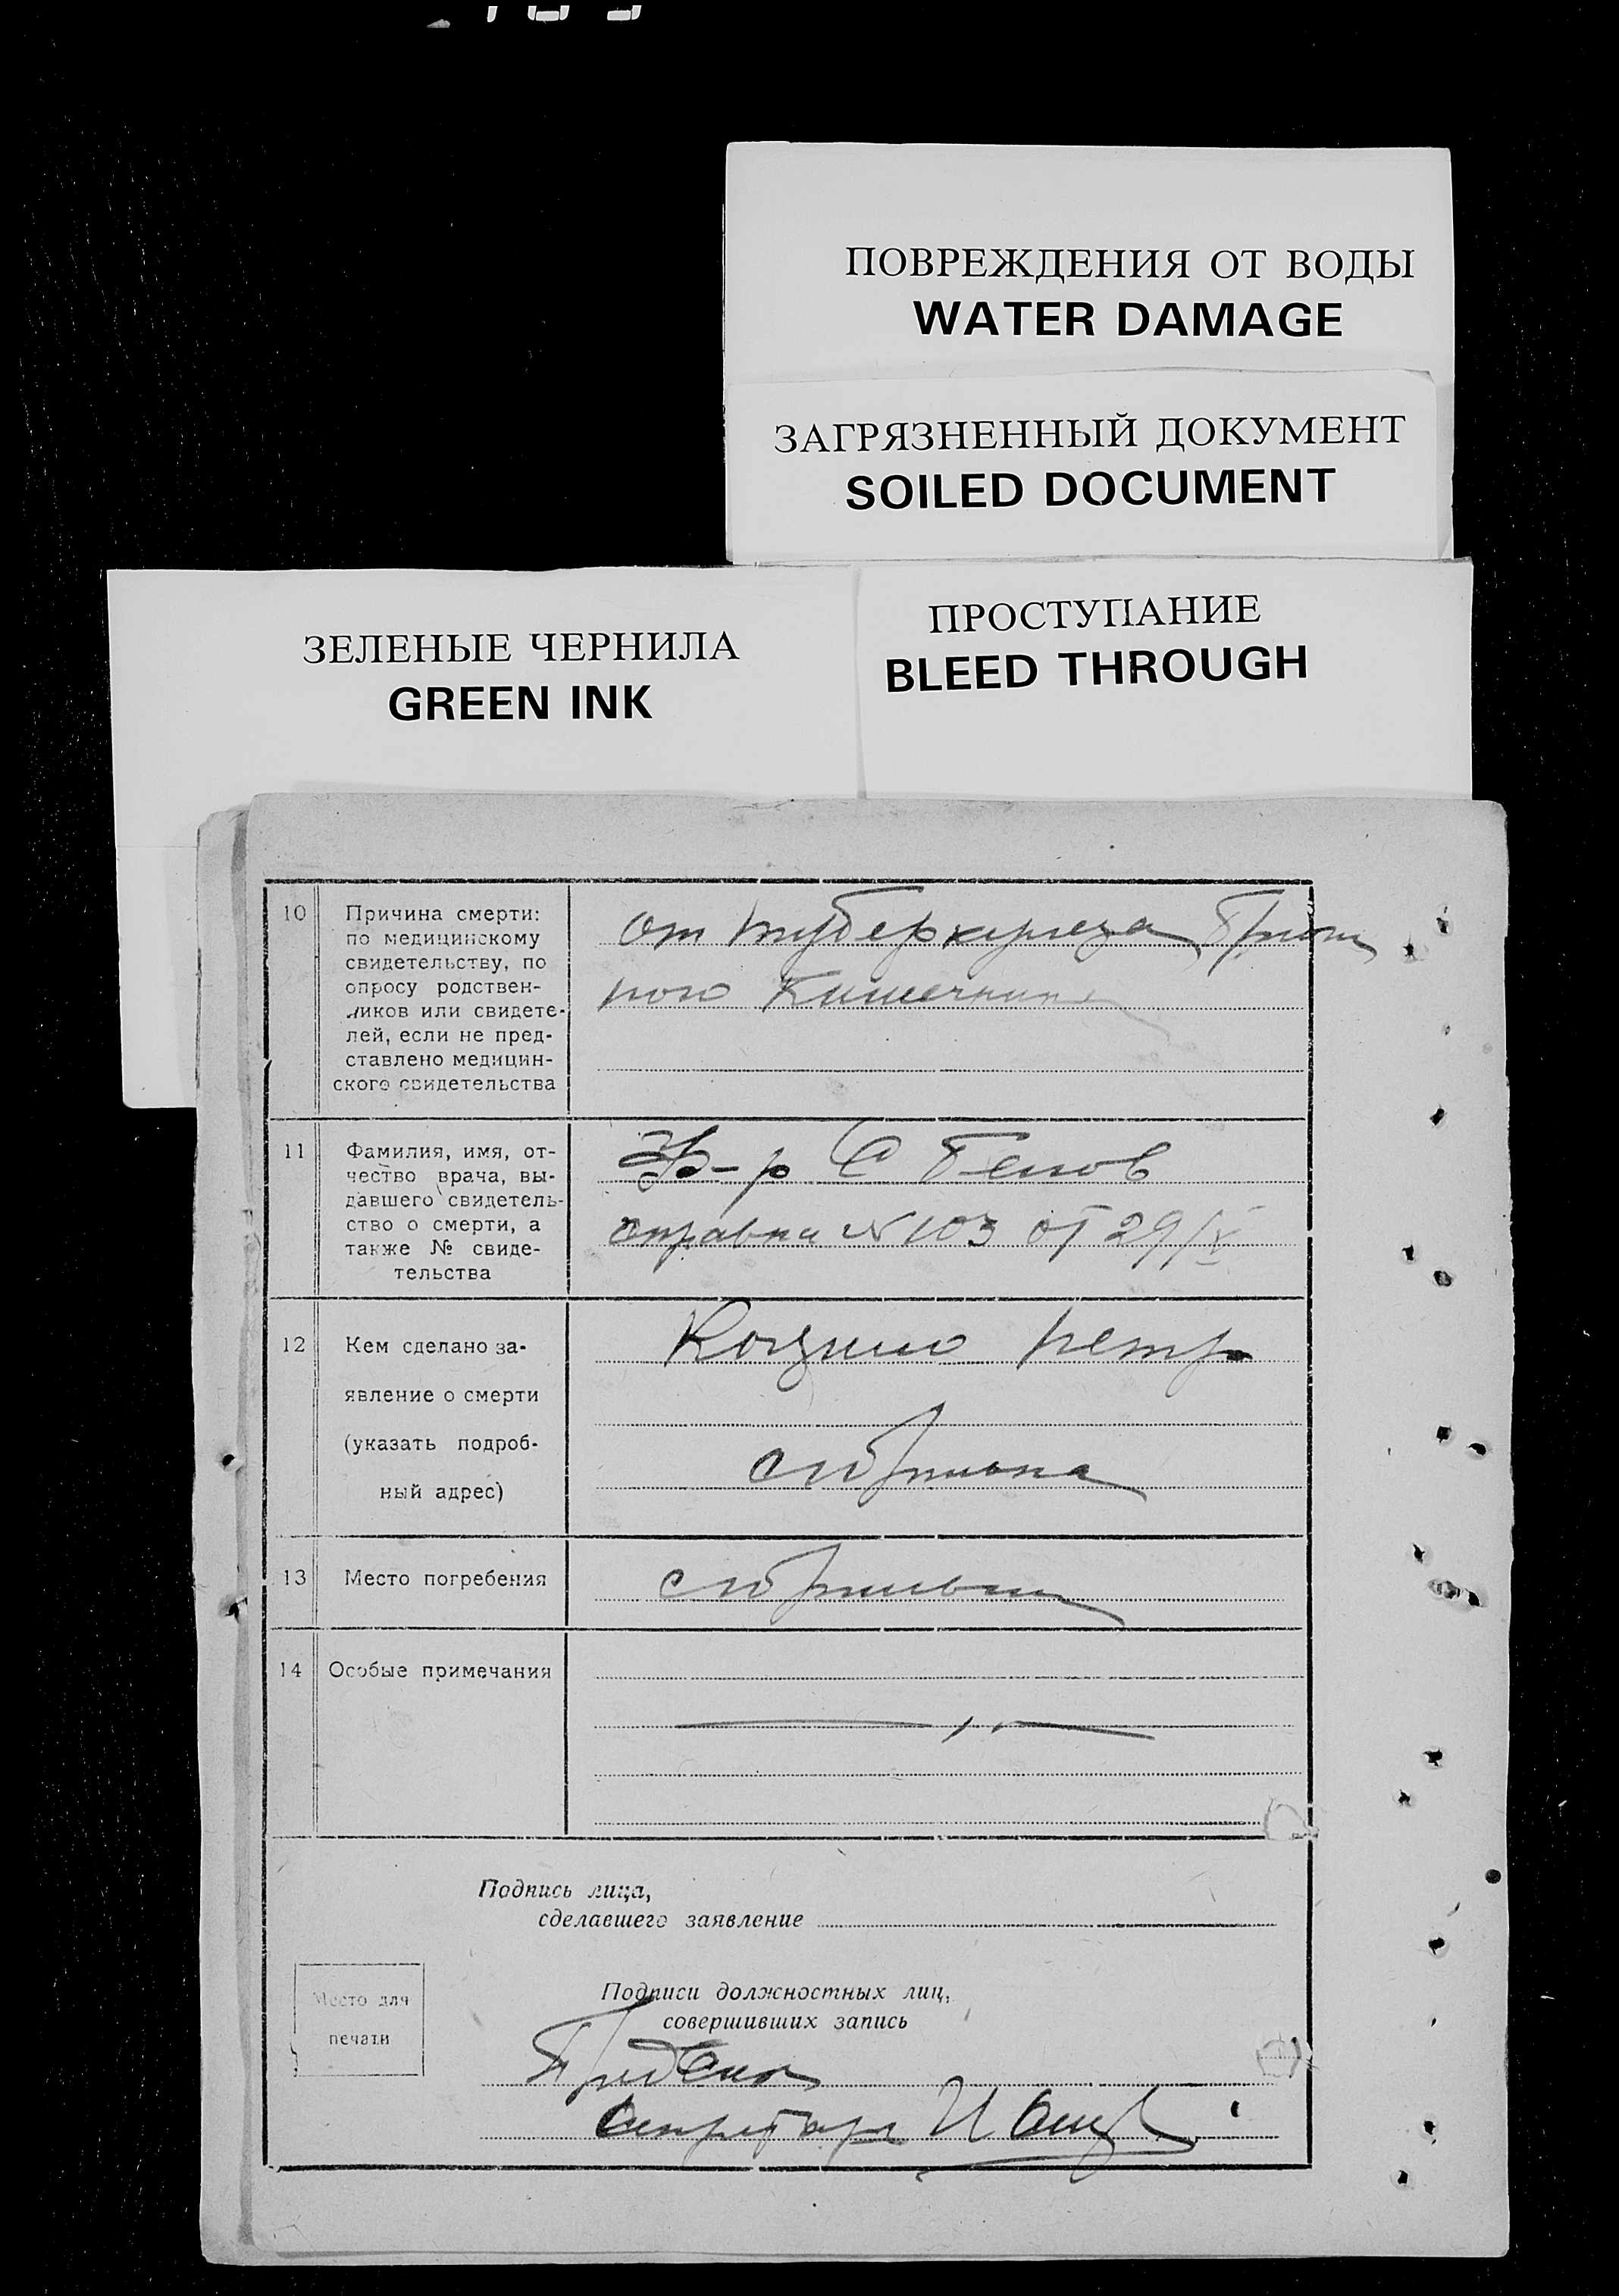 ПОВРЕЖДЕНИЯ ОТ ВОДЫ
WATER DAMAGE
ЗАГРЯЗНЕННЫЙ ДОКУМЕНТ
SOILED DOCUMENT
ЗЕЛЕНЫЕ ЧЕРНИЛА
GREEN INK
ПРОСТУПАНИЕ
BLEED THROUGH
10 Причина смерти:
по медицинскому
свидетельству, по
опросу родствен-
ников или свидете-
лей, если не пред-
ставлено медицин-
ского свидетельства
от туберкулеза
11 Фамилия, имя, от-
чество врача, вы-
давшего свидетель-
ство о смерти, а
также № свиде-
тельства
справка N 103 от 29/V
12 Кем сделано за-
явление о смерти
(указать подроб-
ный адрес)
13 Место погребения
14 Особые примечания
Подпись лица,
сделавшего заявление
Подписи должностных лиц,
совершивших запись
Место для
печати
секретарь